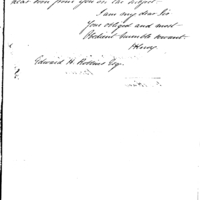 hear from you on the subject
I am my dear Sir
Your obliged and most
Obedient humble servant
Edward H. Robbins Esq.